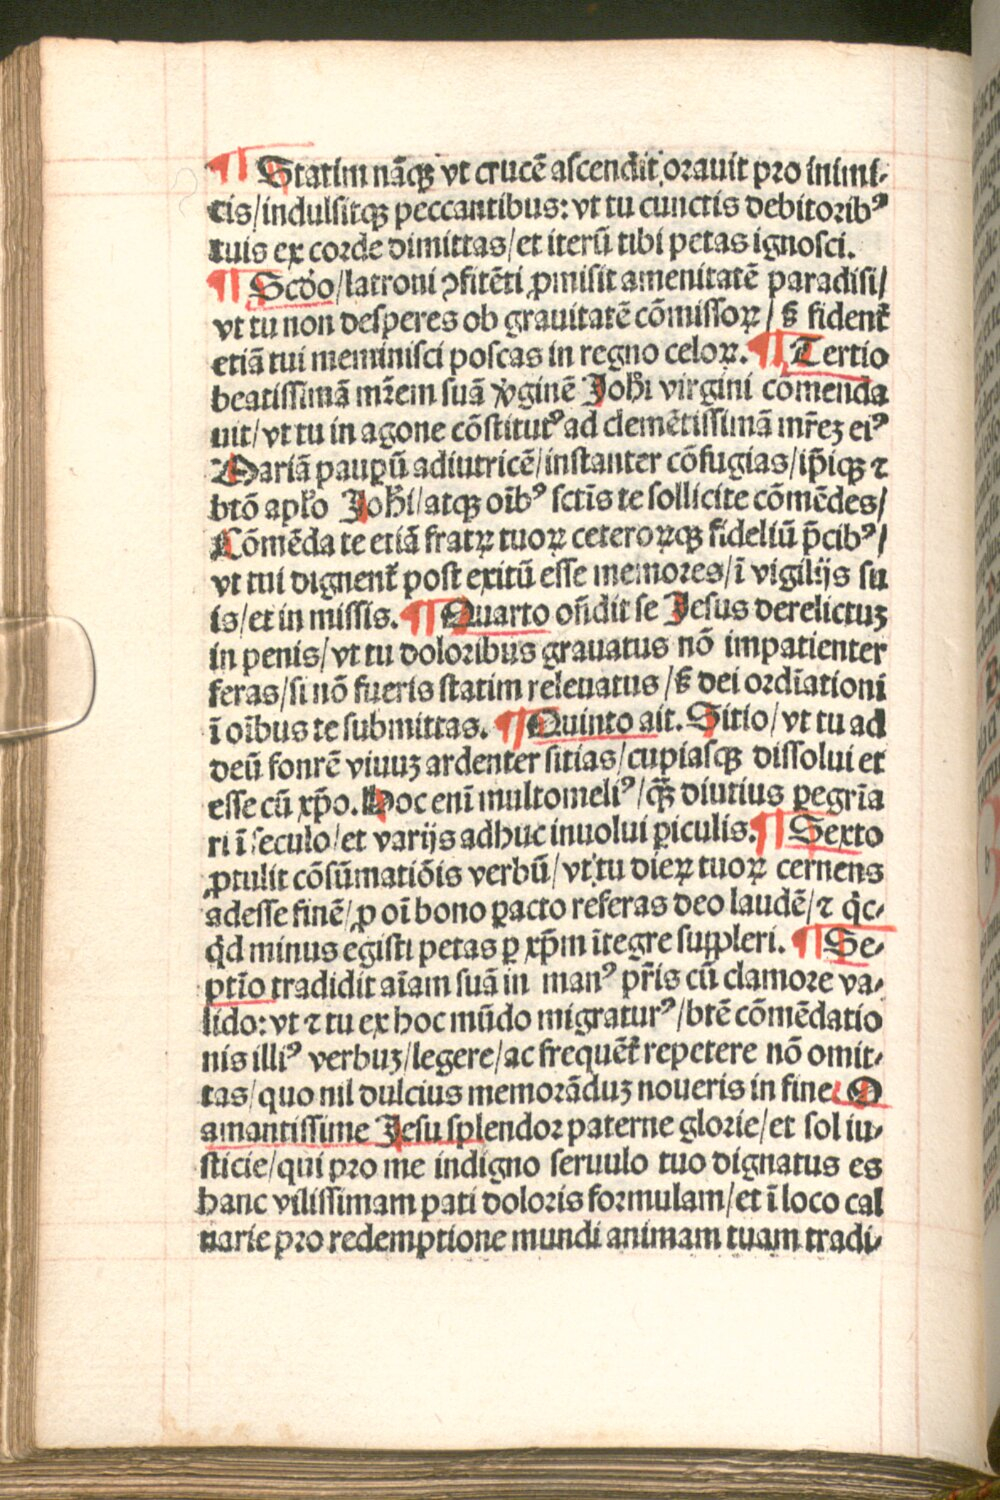 ¶ Statim nãqꝫ vt crucẽ ascendit orauit pro inimi⸗
cis/indulsitqꝫ peccantibus: vt tu cunctis debitoribꝰ
tuis ex corde dimittas/et iterũ tibi petas ignosci.
¶ Scďo/latroni ꝯfitẽti ꝓmisit amenitatẽ paradisi/
vt tu non desperes ob grauitatẽ cõmissoꝝ/ s̃ fident᷑
etiã tui meminisci poscas in regno celoꝝ. ¶ Tertio
beatissimã mr̃em suã v̓ginẽ Joh̃i virgini comenda
uit/vt tu in agone cõstitutꝰ ad clemẽtissimã mr̃eꝫ eiꝰ
Mariã pauꝑũ adiutricẽ/instanter cõfugias/ip̃iqꝫ ⁊
btõ apl̓o Joh̃i/atqꝫ oĩbꝰ sctĩs te sollicite cõmẽdes/
Cõmẽda te etiã fratꝝ tuoꝝ ceteroꝝqꝫ fideliũ p̃cibꝰ/
vt tui dignent᷑ post exitũ esse memores/ĩ vigilijs su
is/et in missis. ¶ Quarto oñdit se Jesus derelictuꝫ
in penis/vt tu doloribus grauatus nõ impatienter
feras/si nõ fueris statim releuatus/s̃ dei ordĩationi
ĩ oĩbus te submittas. ¶ Quinto ait. Sitio/vt tu ad
deũ fonrẽ viuuꝫ ardenter sitias/cupiasqꝫ dissolui et
esse cũ xp̃o. Hoc enĩ multomeliꝰ/qꝫ̃ diutius ꝑegrĩa
ri ĩ seculo/et varijs adhuc inuolui ꝑiculis. ¶ Sexto
ꝓtulit cõsũmatiõis verbũ/vt tu dieꝝ tuoꝝ cernens
adesse finẽ/ꝓ oĩ bono ꝑacto referas deo laudẽ/⁊ q̇c⸗
q̇d minus egisti petas ꝑ xp̃m ĩtegre suppleri. ¶ Se⸗
ptĩo tradidit aĩam suã in manꝰ pr̃is cũ clamore va⸗
lido: vt ⁊ tu ex hoc mũdo migraturꝰ/btẽ cõmẽdatio
nis illiꝰ verbuꝫ/legere/ac frequẽt᷑ repetere nõ omit⸗
tas/quo nil dulcius memorãduꝫ noueris in fine. O
amantissime Jesu splendor paterne glorie/et sol iu⸗
sticie/qui pro me indigno seruulo tuo dignatus es
hanc vilissimam pati doloris formulam/et ĩ loco cal
uarie pro redemptione mundi animam tuam tradi⸗